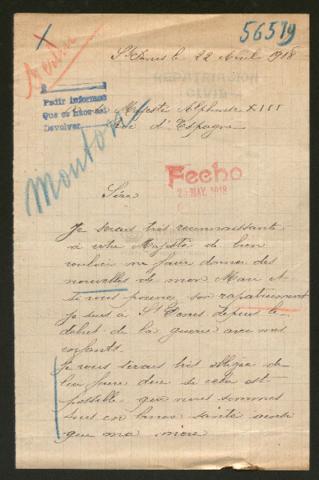 56579
St Denis le 22 Avril 1918
REPATRIACION
CIVIL
Pedir informes
Que se interesa
Devolver
Majesté Alphonse XIII
Roi d'Espagne
Mouton
Fecho
MAY. 1918
Sire
Je serais très reconnaissante
à votre Majesté de bien
vouloir me faire donner des
nouvelles de mon Mari et
si vous pouvez son rapatriement
Je suis à St Denis depuis le
début de la guerre avec mes
enfants.
Je vous serais très obligée de
lui faire dire si cela est
possible que nous sommes
tous en bonne santé ainsi
que ma mère